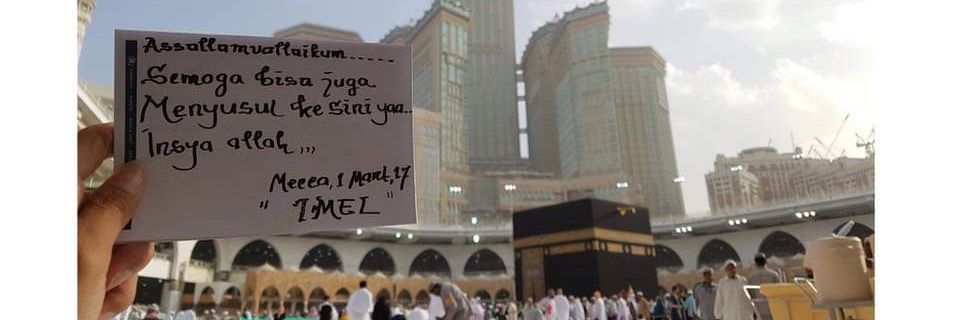 Assallamuallaikum......
Semoga bisa juga
Menyusul ke sini yaa..
Insya allah,,,
Mecca, 1 Maret, 17
" IMEL "